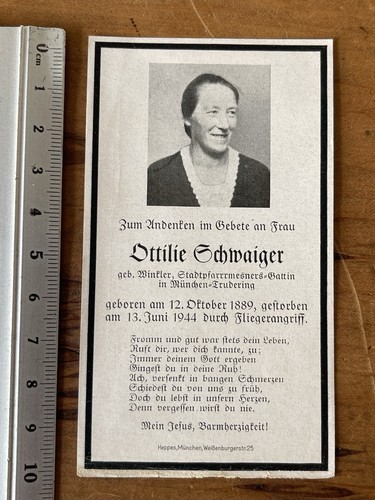 0 cm
1
2
3
4
5
6
7
8
9
10
Zum Andenken im Gebete an Frau
Ottilie Schwaiger
geb. Winkler, Stadtpfarrmesners-Gattin
in München-Trudering
geboren am 12. Oktober 1889, gestorben
am 13. Juni 1944 durch Fliegerangriff.
Fromm und gut war stets dein Leben,
Ruft dir, wer dich kannte, zu;
Immer deinem Gott ergeben
Gingest du in deine Ruh!
Ach, versenkt in bangen Schmerzen
Schiedest du von uns zu früh,
Doch du lebst in unsern Herzen,
Denn vergessen wirst du nie.
Mein Jesus, Barmherzigkeit!
Heppes, München, Weißenburgerstr. 25